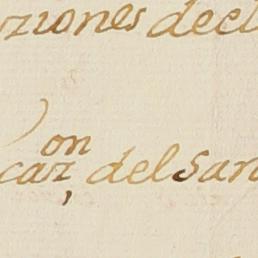 ziones decl
caz,on del San